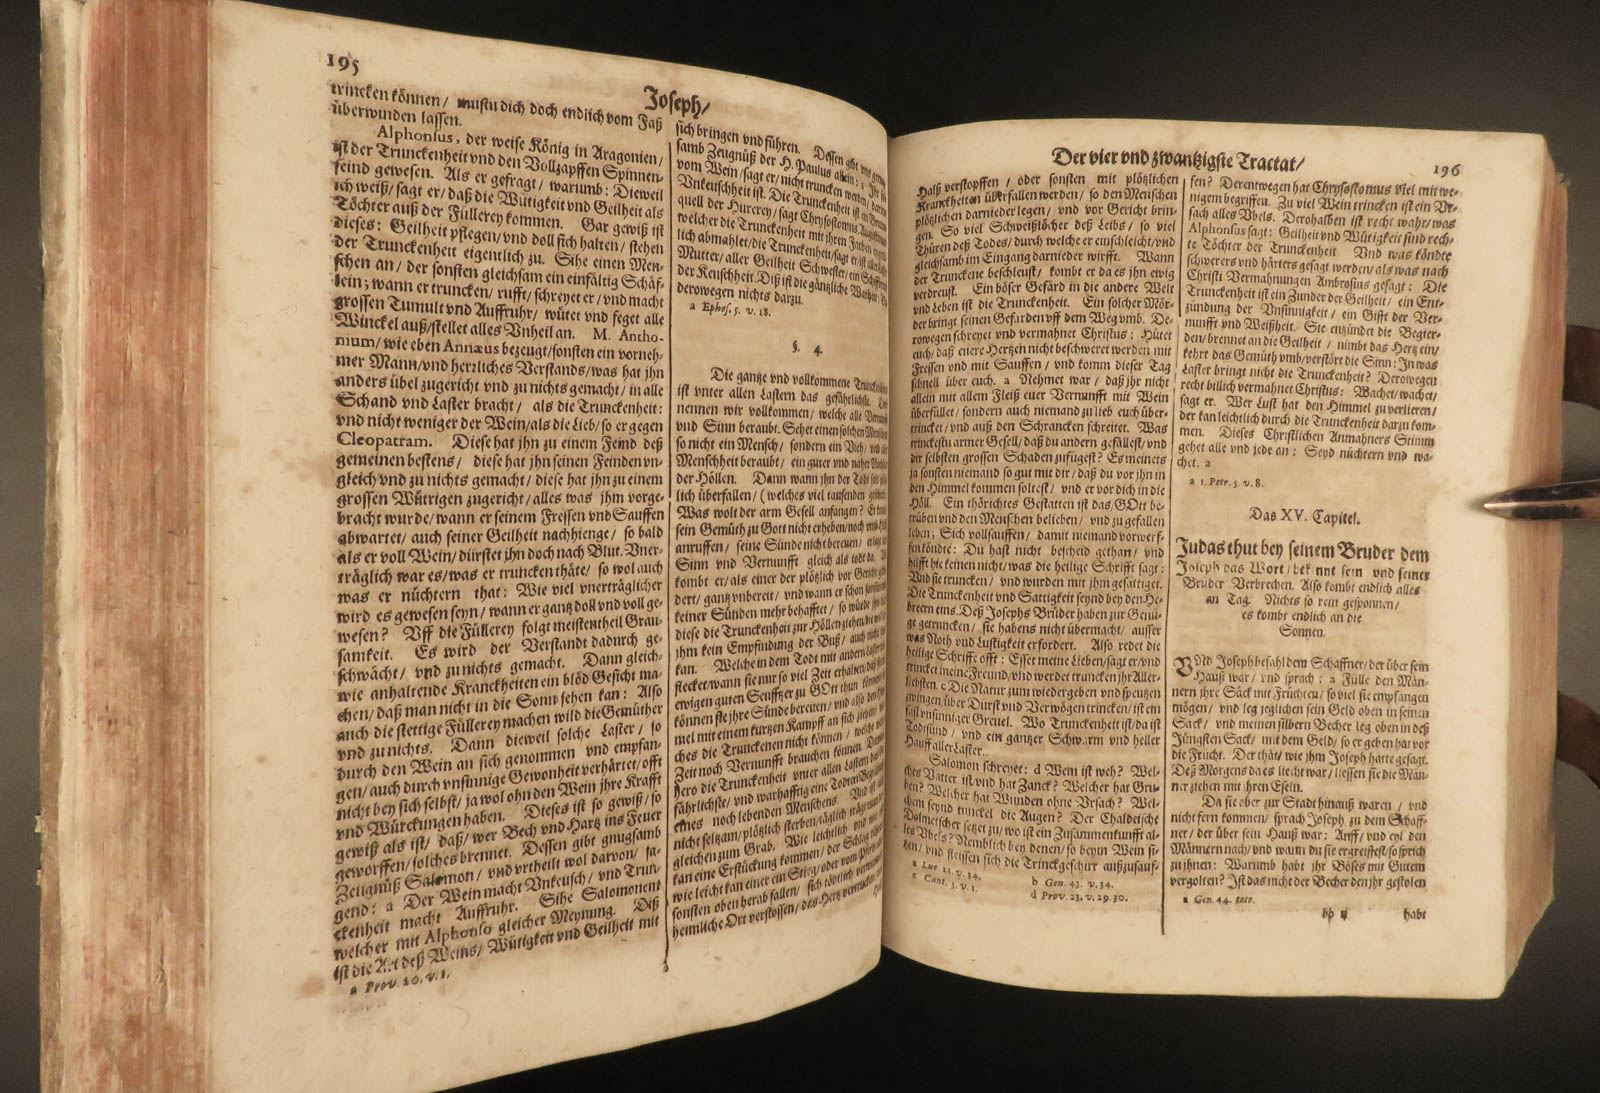 195
Joseph/
trincken können/ mustu dich doch endlich vom Faß
überwunden lassen.
Alphonsus, der weise König in Aragonien/
ist der Trunckenheit vnd den Vollzapffen Spinnen-
feind gewesen. Als er gefragt/ warumb: Dieweil
ich weiß/ sagt er/ daß die Wütigkeit vnd Geilheit als
Töchter auß der Füllerey kommen. Gar gewiß ist
dieses: Geilheit pflegen/ vnd doll sich halten/ stehen
der Trunckenheit eigentlich zu. Sihe einen Men-
schen an/ der sonsten gleichsam ein einfältig Schäf-
lein; wann er truncken/ rufft/ schreyet er/ vnd macht
grossen Tumult vnd Auffruhr/ wütet vnd feget alle
Winckel auß/ stellet alles Vnheil an. M. Antho-
nium/ wie eben Annæus bezeugt/ sonsten ein vorneh-
mer Mann/ vnd herzliches Verstands/ was hat jhn
anders übel zugericht vnd zu nichts gemacht/ in alle
Schand vnd Laster bracht/ als die Trunckenheit:
vnd nicht weniger der Wein/ als die Lieb/ so er gegen
Cleopatram. Diese hat jhn zu einem Feind deß
gemeinen bestens/ diese hat jhn seinen Feinden vn-
gleich vnd zu nichts gemacht/ diese hat jhn zu einem
grossen Wütrigen zugericht/ alles was jhm vorge-
bracht wurde/ wann er seinem Fressen vnd Sauffen
abwartet/ auch seiner Geilheit nachhienge/ so bald
als er voll Wein/ dürstet jhn doch nach Blut. Vner-
träglich war es/ was er truncken thäte/ so wol auch
was er nüchtern that: Wie viel vnerträglicher
wird es gewesen seyn/ wann er gantz doll vnd voll ge-
wesen? Vff die Füllerey folgt meistentheil Grau-
samkeit. Es wird der Verstand dadurch ge-
schwächt/ vnd zu nichts gemacht. Dann gleich-
wie anhaltende Kranckheiten ein blöd Gesicht ma-
chen/ daß man nicht in die Sonn sehen kan: Also
auch die stettige Füllerey machen wild die Gemüther
vnd zu nichts. Dann dieweil solche Laster/ so
durch den Wein an sich genommen vnd empfan-
gen/ auch durch vnsinnige Gewonheit verhärtet/ offt
nicht bey sich selbst/ ja wol ohn den Wein jhre Krafft
vnd Würckungen haben. Dieses ist so gewiß/ so
gewiß als ist/ daß/ wer Bech vnd Hartz ins Feuer
geworffen/ solches brennet. Dessen gibt gnugsamb
Zeugnüß Salomon/ vnd vrtheilt wol darvon/ sa-
gend: a Der Wein macht Vnkeusch/ vnd Trun-
ckenheit macht Auffruhr. Sihe Salomonem
welcher mit Alphonso gleicher Meynung. Diß
ist die Art deß Weins/ Wütigkeit vnd Geilheit mit
a Prov. 20. v. 1.
sich bringen vnd führen. Dessen gibt vns
samb Zeugnüß der H. Paulus allein: a
vom Wein/ sagt er/ nicht truncken werden/
Vnkeuschheit ist. Die Trunckenheit ist ein
quell der Hurerey/ sagt Chrysostomus.
welcher die Trunckenheit mit jhren Farben
lich abmahlet/ die Trunckenheit/ sagt er/ ist aller
Mutter/ aller Geilheit Schwester/ ein
der Keuschheit. Diß ist die gäntzliche
derowegen nichts darzu.
a Ephes. 5. v. 18.
§. 4
Die gantze vnd vollkommene
ist vnter allen Lastern das gefährlichste.
nennen wir vollkommen/ welche alle
vnd Sinn beraubt. Sehet einen solchen Menschen
so nicht ein Mensch/ sondern ein Vieh/
Menschheit beraubt/ ein guter vnd naher
der Höllen. Dann wann jhn der Todt
lich überfallen/ (welches viel tausenden
Was wolt der arm Gesell anfangen?
sein Gemüth zu Gott nicht erheben/ noch
anruffen/ seine Sünde nicht bereuen/
Sinn vnd Vernunfft gleich als todt da.
kombt er/ als einer der plötzlich vor Gericht
dert/ gantz vnbereit/ vnd wann er schon
keiner Sünden mehr behafftet/ so würde jhn
diese die Trunckenheit zur Höllen ziehen/
jhm kein Empfindung der Buß/ auch nicht
kan. Welche in dem Todt mit andern
stecket/ wann sie nur so viel Zeit erhalten/
ewigen guten Seufftzer zu GOtt thun
können sie jhre Sünde bereuen/ vnd also den
mel mit einem kurtzen Kampff an sich ziehen/
ches die Trunckenen nicht können/ welche
Zeit noch Vernunfft brauchen können.
hero die Trunckenheit vnter allen Lastern
fährlichste/ vnd warhafftig eine Todten
eines noch lebenden Menschens. Vnd ist
nicht seltzam/ plötzlich sterben/ täglich
gleichen zum Grab. Wie leichtlich
kan eine Erstückung kommen/ der Schlag
wie leicht kan einer ein Stieg/ oder vom Pferd
sonsten oben herab fallen/ sich tödtlich
heimliche Ort verstossen/ das Hertz
Der vier vnd zwantzigste Tractat/
196
Halß verstopffen/ oder sonsten mit plötzlichen
Kranckheiten überfallen werden/ so den Menschen
plötzlichen darnieder legen/ vnd vor Gericht brin-
gen. So viel Schweißlöcher deß Leibs/ so viel
Thüren deß Todes/ durch welche er einschleicht/ vnd
gleichsamb im Eingang darnieder wirfft. Wann
der Trunckene beschleust/ kombt er da es jhn ewig
verdreust. Ein böser Gefärd in die andere Welt
vnd Leben ist die Trunckenheit. Ein solcher Mör-
der bringt seinen Gefarden vff dem Weg vmb. De-
rowegen schreyet vnd vermahnet Christus: Hütet
euch/ daß euere Hertzen nicht beschweret werden mit
Fressen vnd mit Sauffen/ vnd komm dieser Tag
schnell über euch. a Nehmet war/ daß jhr nicht
allein mit allem Fleiß euer Vernunfft mit Wein
überfüllet/ sondern auch niemand zu lieb euch über-
trincket/ vnd auß den Schrancken schreitet. Was
trinckestu armer Gesell/ daß du andern gefällest/ vnd
dir selbsten grossen Schaden zufügest? Es meinets
ja sonsten niemand so gut mit dir/ daß du vor jhn in
den Himmel kommen soltest/ vnd er vor dich in die
Höll. Ein thörichtes Gestatten ist das/ GOtt be-
trüben vnd den Menschen belieben/ vnd zu gefallen
leben; Sich vollsauffen/ damit niemand vorwerf-
fen köndte: Du hast nicht bescheid gethan/ vnd
hilfft hie keinen nicht/ was die heilige Schrifft sagt:
Vnd sie truncken/ vnd wurden mit jhm gesättiget.
Die Trunckenheit vnd Sattigkeit seynd bey den He-
breern eins. Deß Josephs Brüder haben zur Genü-
ge getruncken/ sie habens nicht übermacht/ ausser
was Noth vnd Lustigkeit erfordert. Also redet die
heilige Schriffe offt: Esset meine Lieben/ sagt er/ vnd
trincket meine Freund/ vnd werdet truncken jhr Aller-
liebsten. c Die Natur zum wiedergeben vnd speutzen
zwingen/ über Durst vnd Vermögen trincken/ ist ein
fast vnsinniger Greuel. Wo Trunckenheit ist/ da ist
Todsünd/ vnd ein gantzer Schwarm vnd heller
Hauff aller Laster.
Salomon schreyet: d Wem ist weh? Wel-
ches Vatter ist vnd hat Zanck? Welcher hat Gru-
ben? Welcher hat Wunden ohne Vrsach? Wel-
chem seynd tunckel die Augen? Der Chaldeische
Dolmetscher setzet zu/ wo ist ein Zusammenkunfft al-
les Vbels? Nemblich bey denen/ so beym Wein si-
tzen/ vnd fleissen sich die Trinckgeschirr außzusauf-
a Luc 21. v. 34.
b Gen. 43. v. 34.
c Cant. 5. v. 1.
d Prov. 23. v. 29. 30.
fen? Derentwegen hat Chrysostomus viel mit we-
nigem begriffen. Zu viel Wein trincken ist ein Vr-
sach alles Vbels. Derohalben ist recht wahr/ was
Alphonsus sagt: Geilheit vnd Wütigkeit sind rech-
te Töchter der Trunckenheit. Vnd was köndte
schwerers vnd härters gesagt werden/ als was nach
Christi Vermahnungen Ambrosius gesagt: Die
Trunckenheit ist ein Zunder der Geilheit/ ein Ent-
zündung der Vnsinnigkeit/ ein Gifft der Ver-
nunfft vnd Weißheit. Sie entzündet die Begier-
den/ brennet an die Geilheit/ nimbt das Hertz ein/
kehrt das Gemüth vmb/ verstört die Sinn: In was
Laster bringt nicht die Trunckenheit? Derowegen
recht billich vermahnet Christus: Wachet/ wachet/
sagt er. Wer Lust hat den Himmel zu verlieren/
der kan leichtlich durch die Trunckenheit darzu kom-
men. Dieses Christlichen Anmahners Stimm
gehet alle vnd jede an: Seyd nüchtern vnd wa-
chet. a
a 1. Petr. 5. v. 8.
Das XV. Capitel.
Judas thut bey seinem Bruder dem
Joseph das Wort/ bekennt sein vnd seiner
Bruder Verbrechen. Also kombt endlich alles
an Tag. Nichts so rein gesponnen/
es kombt endlich an die
Sonnen.
VNd Joseph befahl dem Schaffner/ der über sein
Hauß war/ vnd sprach: a Fülle den Män-
nern jhre Säck mit Früchten/ so viel sie empfangen
mögen/ vnd leg jeglichen sein Geld oben in seinen
Sack/ vnd meinen silbern Becher leg oben in deß
Jüngsten Sack/ mit dem Geld/ so er geben hat vor
die Frücht. Der thät/ wie jhm Joseph hatte gesagt.
Deß Morgens da es liecht war/ liessen sie die Män-
ner ziehen mit jhren Eseln.
Da sie aber zur Stadt hinauß waren/ vnd
nicht fern kommen/ sprach Joseph zu dem Schaff-
ner/ der über sein Hauß war: Auff/ vnd eyl den
Männern nach/ vnd wann du sie ergreiffest/ so sprich
zu jhnen: Warumb habt jhr Böses mit Gutem
vergolten? Ist das nicht der Becher den jhr gestolen
a Gen. 44. toto.
bb ij habt